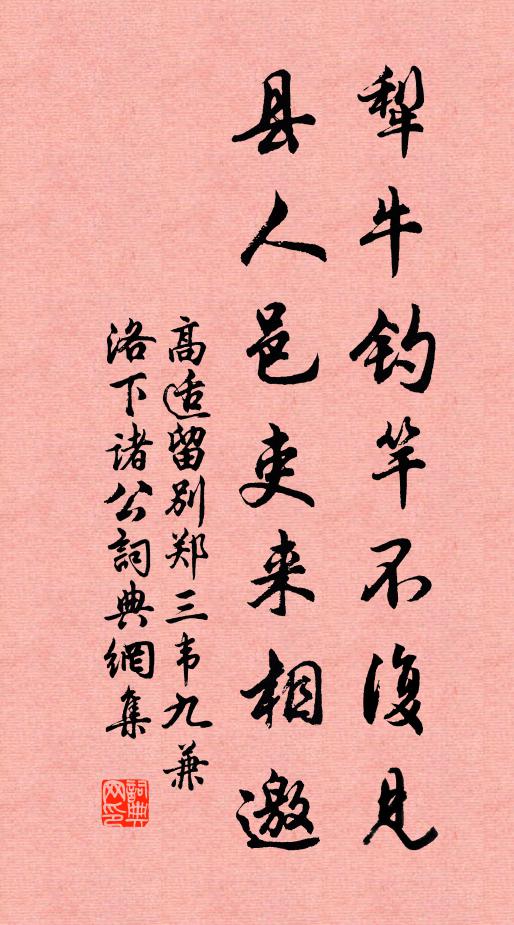 犁牛钓竿不復见
县人邑吏来相邀
高适留别郑三韦九兼
洛下诸公詞典網集
詞典网印